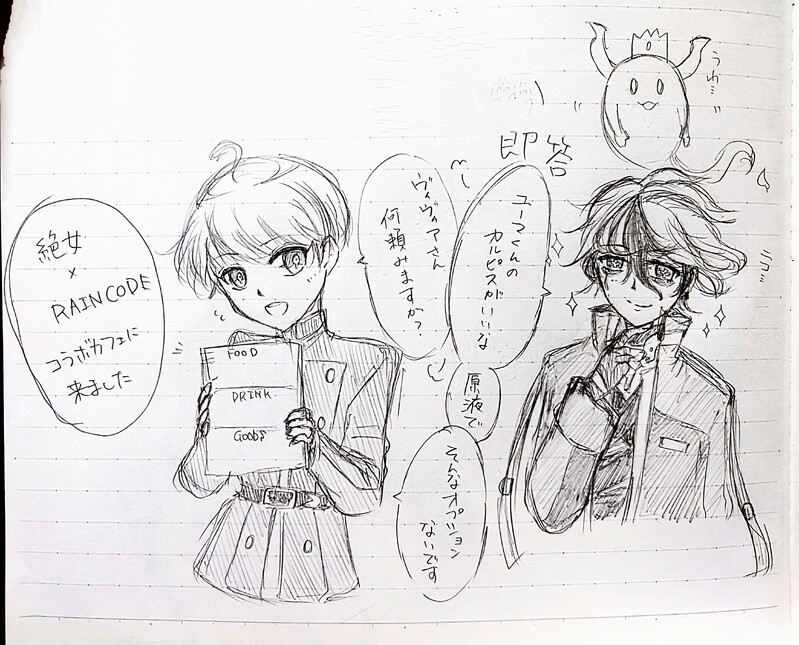 絶女
×
RAINCODE
コラボカフェに
来ました
FOOD
DRINK
GOODS
ヴィヴィアさん
何頼みますか?
即答
ユーマくんの
カルピスがいいな
原液で
そんなオプション
ないです
うわ…
ニコ…